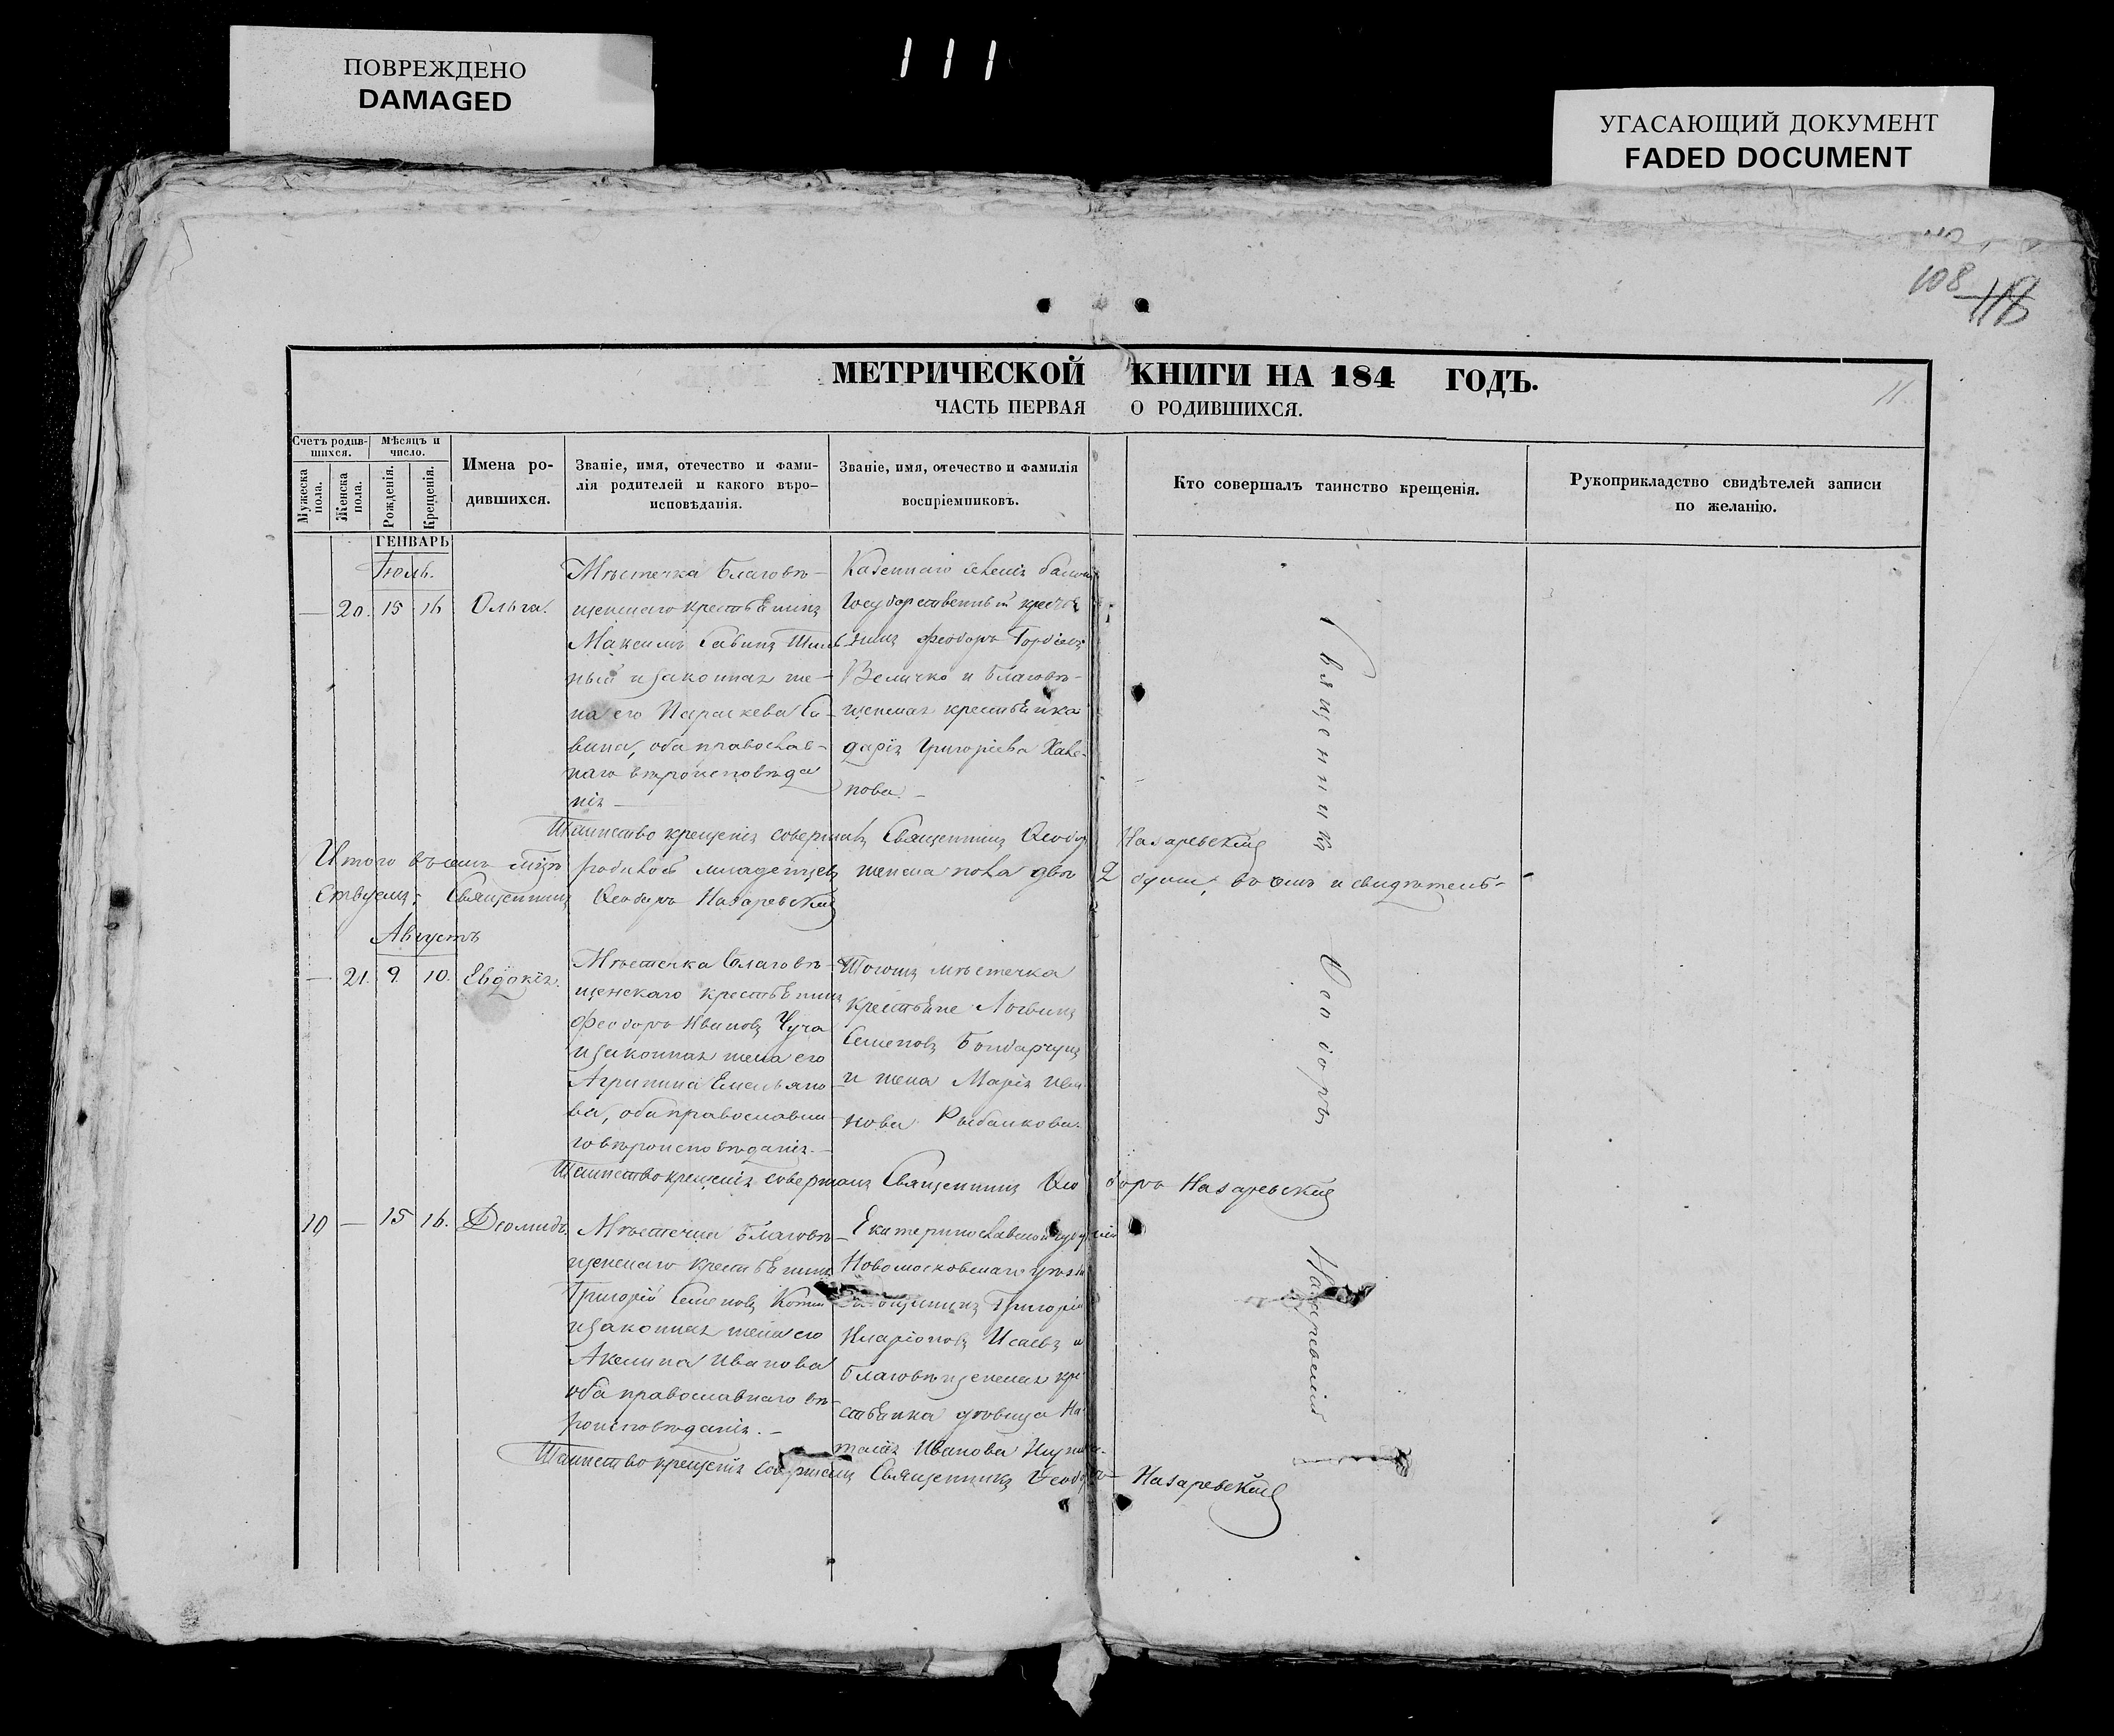 ПОВРЕЖДЕНО
DAMAGED
111
УГАСАЮЩИЙ ДОКУМЕНТ
FADED DOCUMENT
108
МЕТРИЧЕСКОЙ КНИГИ НА 184 ГОДЪ.
11
ЧАСТЬ ПЕРВАЯ О РОДИВШИХСЯ.
Счетъ родив-
шихся.
Мужеска
пола.
Женска
пола.
Мѣсяцъ и
число.
Рожденія.
Крещенія.
Имена ро-
дившихся.
Званіе, имя, отечество и фами-
лія родителей и какого вѣро-
исповѣданія.
Званіе, имя, отечество и фамилія
воспріемниковъ.
Кто совершалъ таинство крещенія.
Рукоприкладство свидѣтелей записи
по желанію.
ГЕНВАРЬ
Іюль.
— 20. 15 16 Ольга.
Мѣстечка Благовѣ-
щенскаго крестьянинъ
Максимъ Савинъ
ный и законная же-
на его Параскева Са-
вина, оба православ-
наго вѣроисповѣда
нія —
Казеннаго селенія
Государственный кресть
янинъ Феодоръ Гордіевъ
Величко и Благовѣ-
щенская крестьянка
Дарія Григоріева
нова. —
Таинство крещенія совершалъ Священникъ Ѳеодоръ Назаревскій
Итого въ семъ мѣсяцѣ родилось младенцевъ женска пола двѣ 2 души, въ чемъ и свидѣтель-
ствуемъ: Священникъ Ѳеодоръ Назаревскій
Августъ
— 21. 9. 10. Евдокія.
Мѣстечка Благовѣ-
щенскаго крестьянинъ
Феодоръ Ивановъ Чуча
и законная жена его
Агрипина Емельяно
ва, оба православна
го вѣроисповѣданія. —
Тогожъ мѣстечка
крестьяне Логвинъ
Семеновъ Бондарчукъ
и жена Марія Ива
нова Рыбалкова.
Таинство крещенія совершалъ Священникъ Ѳеодоръ Назаревскій
10 — 15 16. Діомидъ.
Мѣстечка Благовѣ-
щенскаго крестьянинъ
Григорій Семеновъ
и законная жена его
Акилина Иванова
оба православнаго вѣ-
роисповѣданія. —
Екатеринославской губерніи
Новомосковскаго уѣзда
Григорій
Иларіоновъ Исаевъ и
Благовѣщенская кре
стьянка вдовица На
талія Иванова
Таинство крещенія совершалъ Священникъ Ѳеодоръ Назаревскій
Священникъ
Ѳеодоръ
Назаревскій